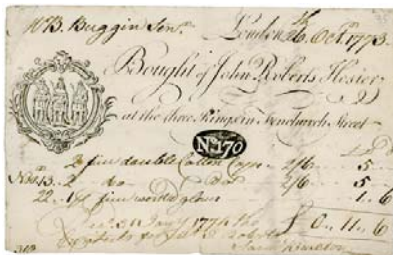 Mr B. Buggin Senr.
London 26th Octr. 1773
Bought of John Roberts Hosier
at the three Kings in Fenchurch Street
No. 170
2 fine double Cotton Caps 2/6 5
Novr. 13. 2 do Do 2/6 5
22. 1 pr fine worsted gloves 1. 6
£ 0. 11. 6